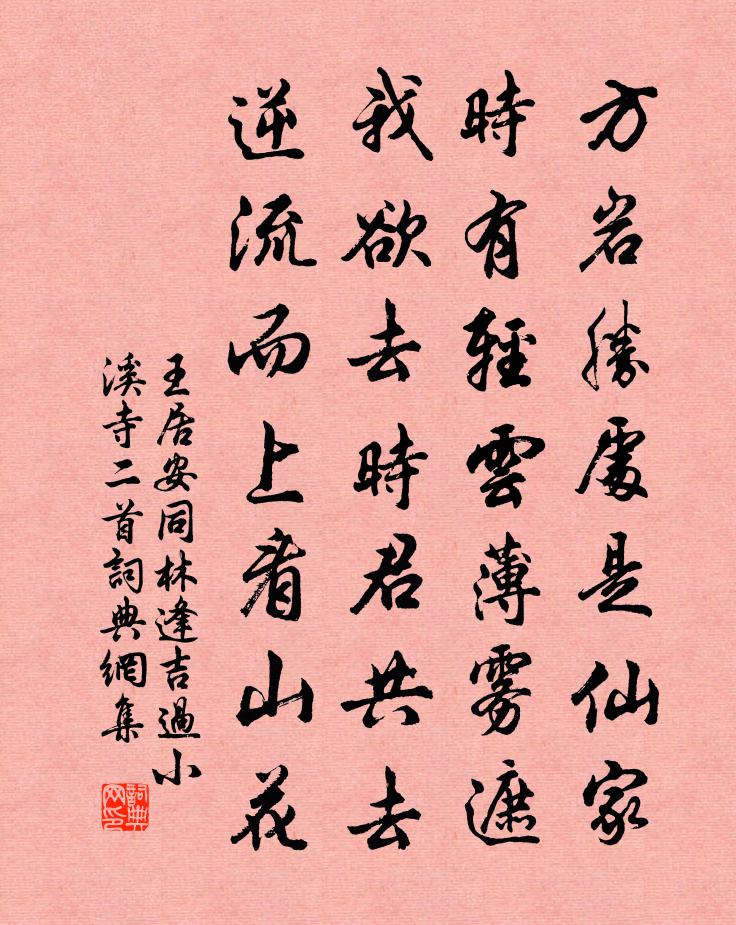 方岩勝處是仙家
時有輕雲薄雾遮
我欲去時君共去
逆流而上看山花
王居安同林逢吉過小
溪寺二首詞典網集
詞典網印